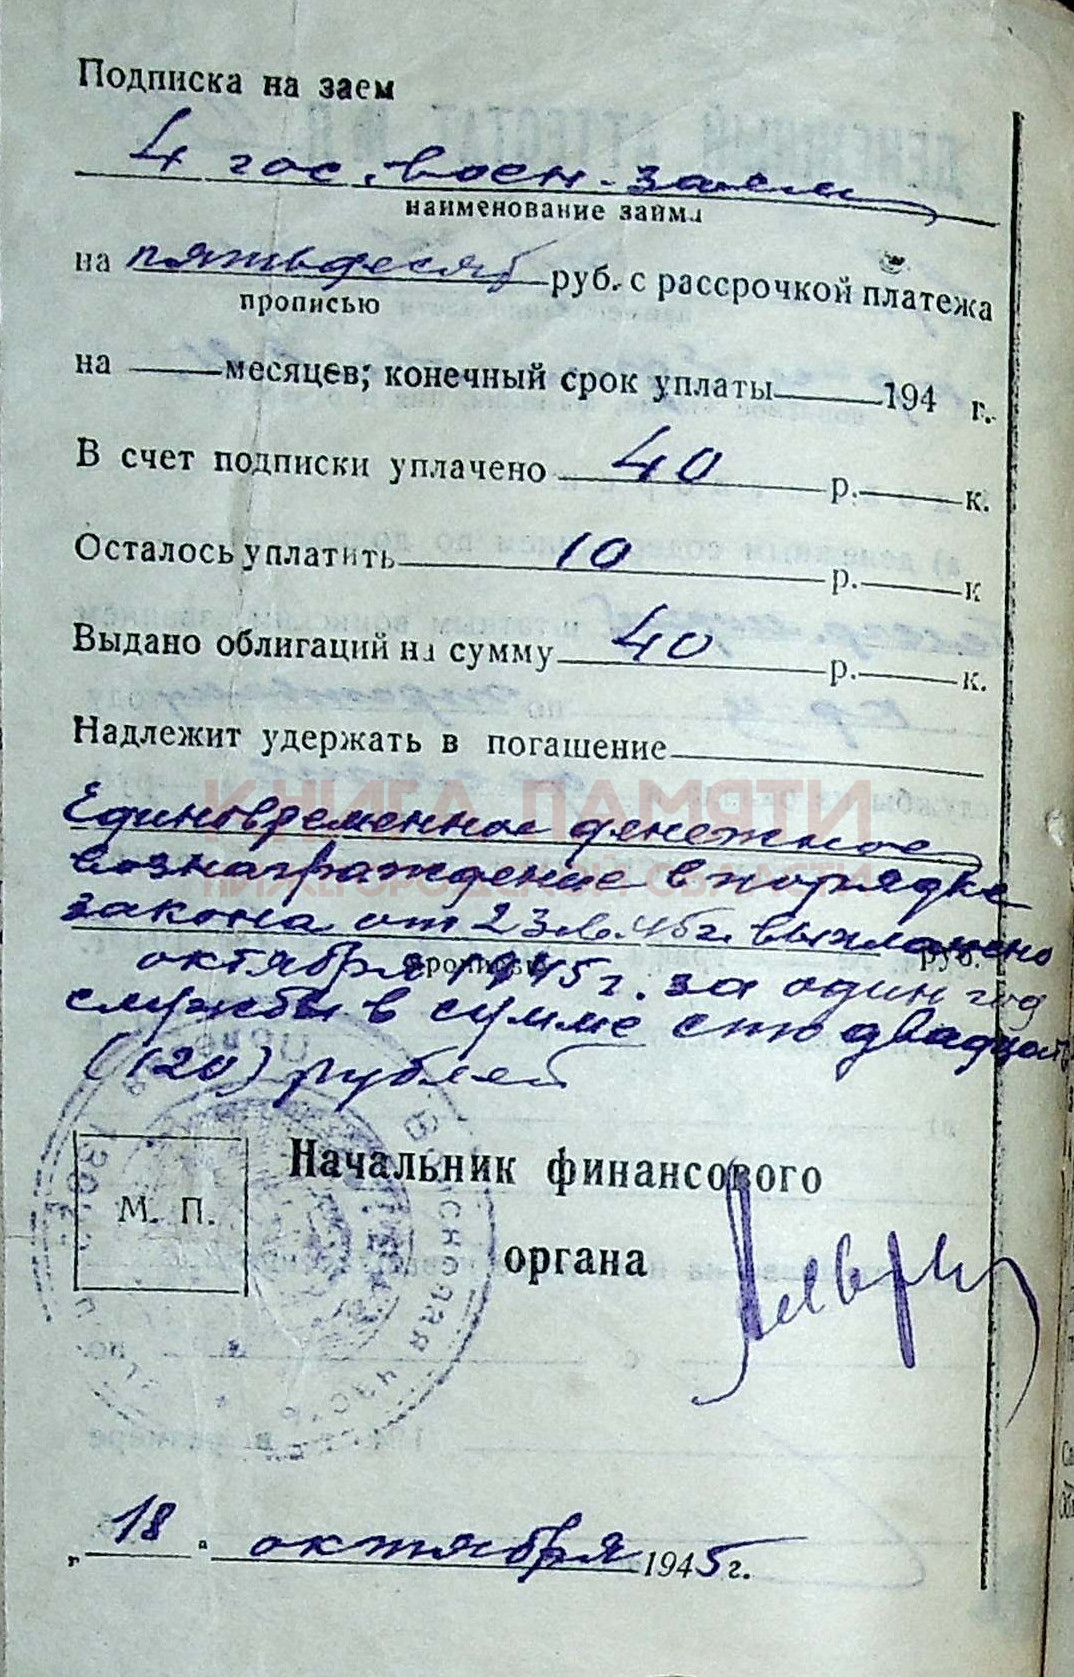 Подписка на заем
4 гос. воен. заем
наименование займа
на пятьдесят руб. с рассрочкой платежа
прописью
на месяцев; конечный срок уплаты 194 г.
В счет подписки уплачено 40 р. к.
Осталось уплатить 10 р. к
Выдано облигаций на сумму 40 р. к.
Надлежит удержать в погашение
КНИГА ПАМЯТИ
Единовременное денежное
НИЖЕГОРОДСКОЙ ОБЛАСТИ
вознаграждение в порядке
закона от 23.6.45г. выплачено
прописью руб.
октября 1945г. за один год
службы в сумме сто двадцать
(120) рублей
Начальник финансового
органа
М. П.
Войсковая часть
18 октября 1945г.